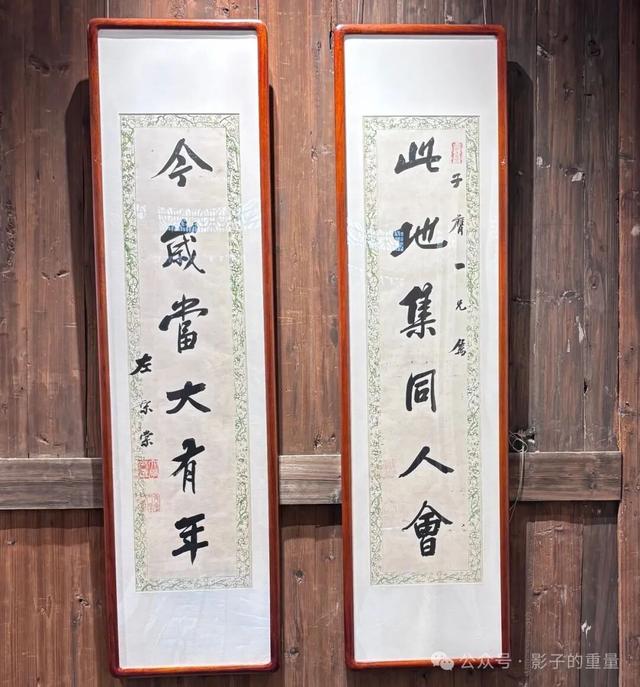 此地集同人會
子膺一兄屬
今歲當大有年
左宗棠
公众号 · 影子的重量